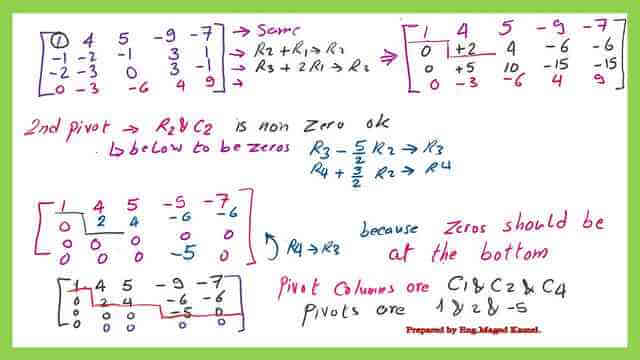 ① 4 5 -9 -7 → Same
-1 -2 -1 3 1 → R2 + R1 → R2
-2 -3 0 3 -1 → R3 + 2R1 → R3
0 -3 -6 4 9 →
⇒
1 4 5 -9 -7
0 +2 4 -6 -6
0 +5 10 -15 -15
0 -3 -6 4 9
2nd pivot → R2 & C2 is non zero ok
↳ below to be zeros R3 - 5/2 R2 → R3
R4 + 3/2 R2 → R4
1 4 5 -9 -7
0 2 4 -6 -6
0 0 0 0 0
0 0 0 -5 0
R4 → R3
because zeros should be
at the bottom
1 4 5 -9 -7
0 2 4 -6 -6
0 0 0 -5 0
0 0 0 0 0
Pivot Columns are C1 & C2 & C4
Pivots are 1 & 2 & -5
Prepared by Eng.Maged Kamel.